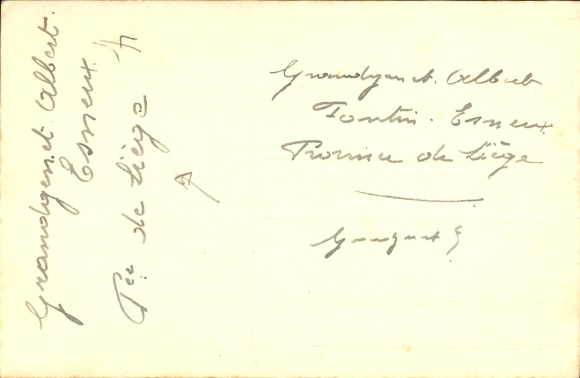 Grandgenet. Albert.
Esneux.
Pce de Liège
Grandgenet. Albert
Fontin. Esneux.
Province de Liège